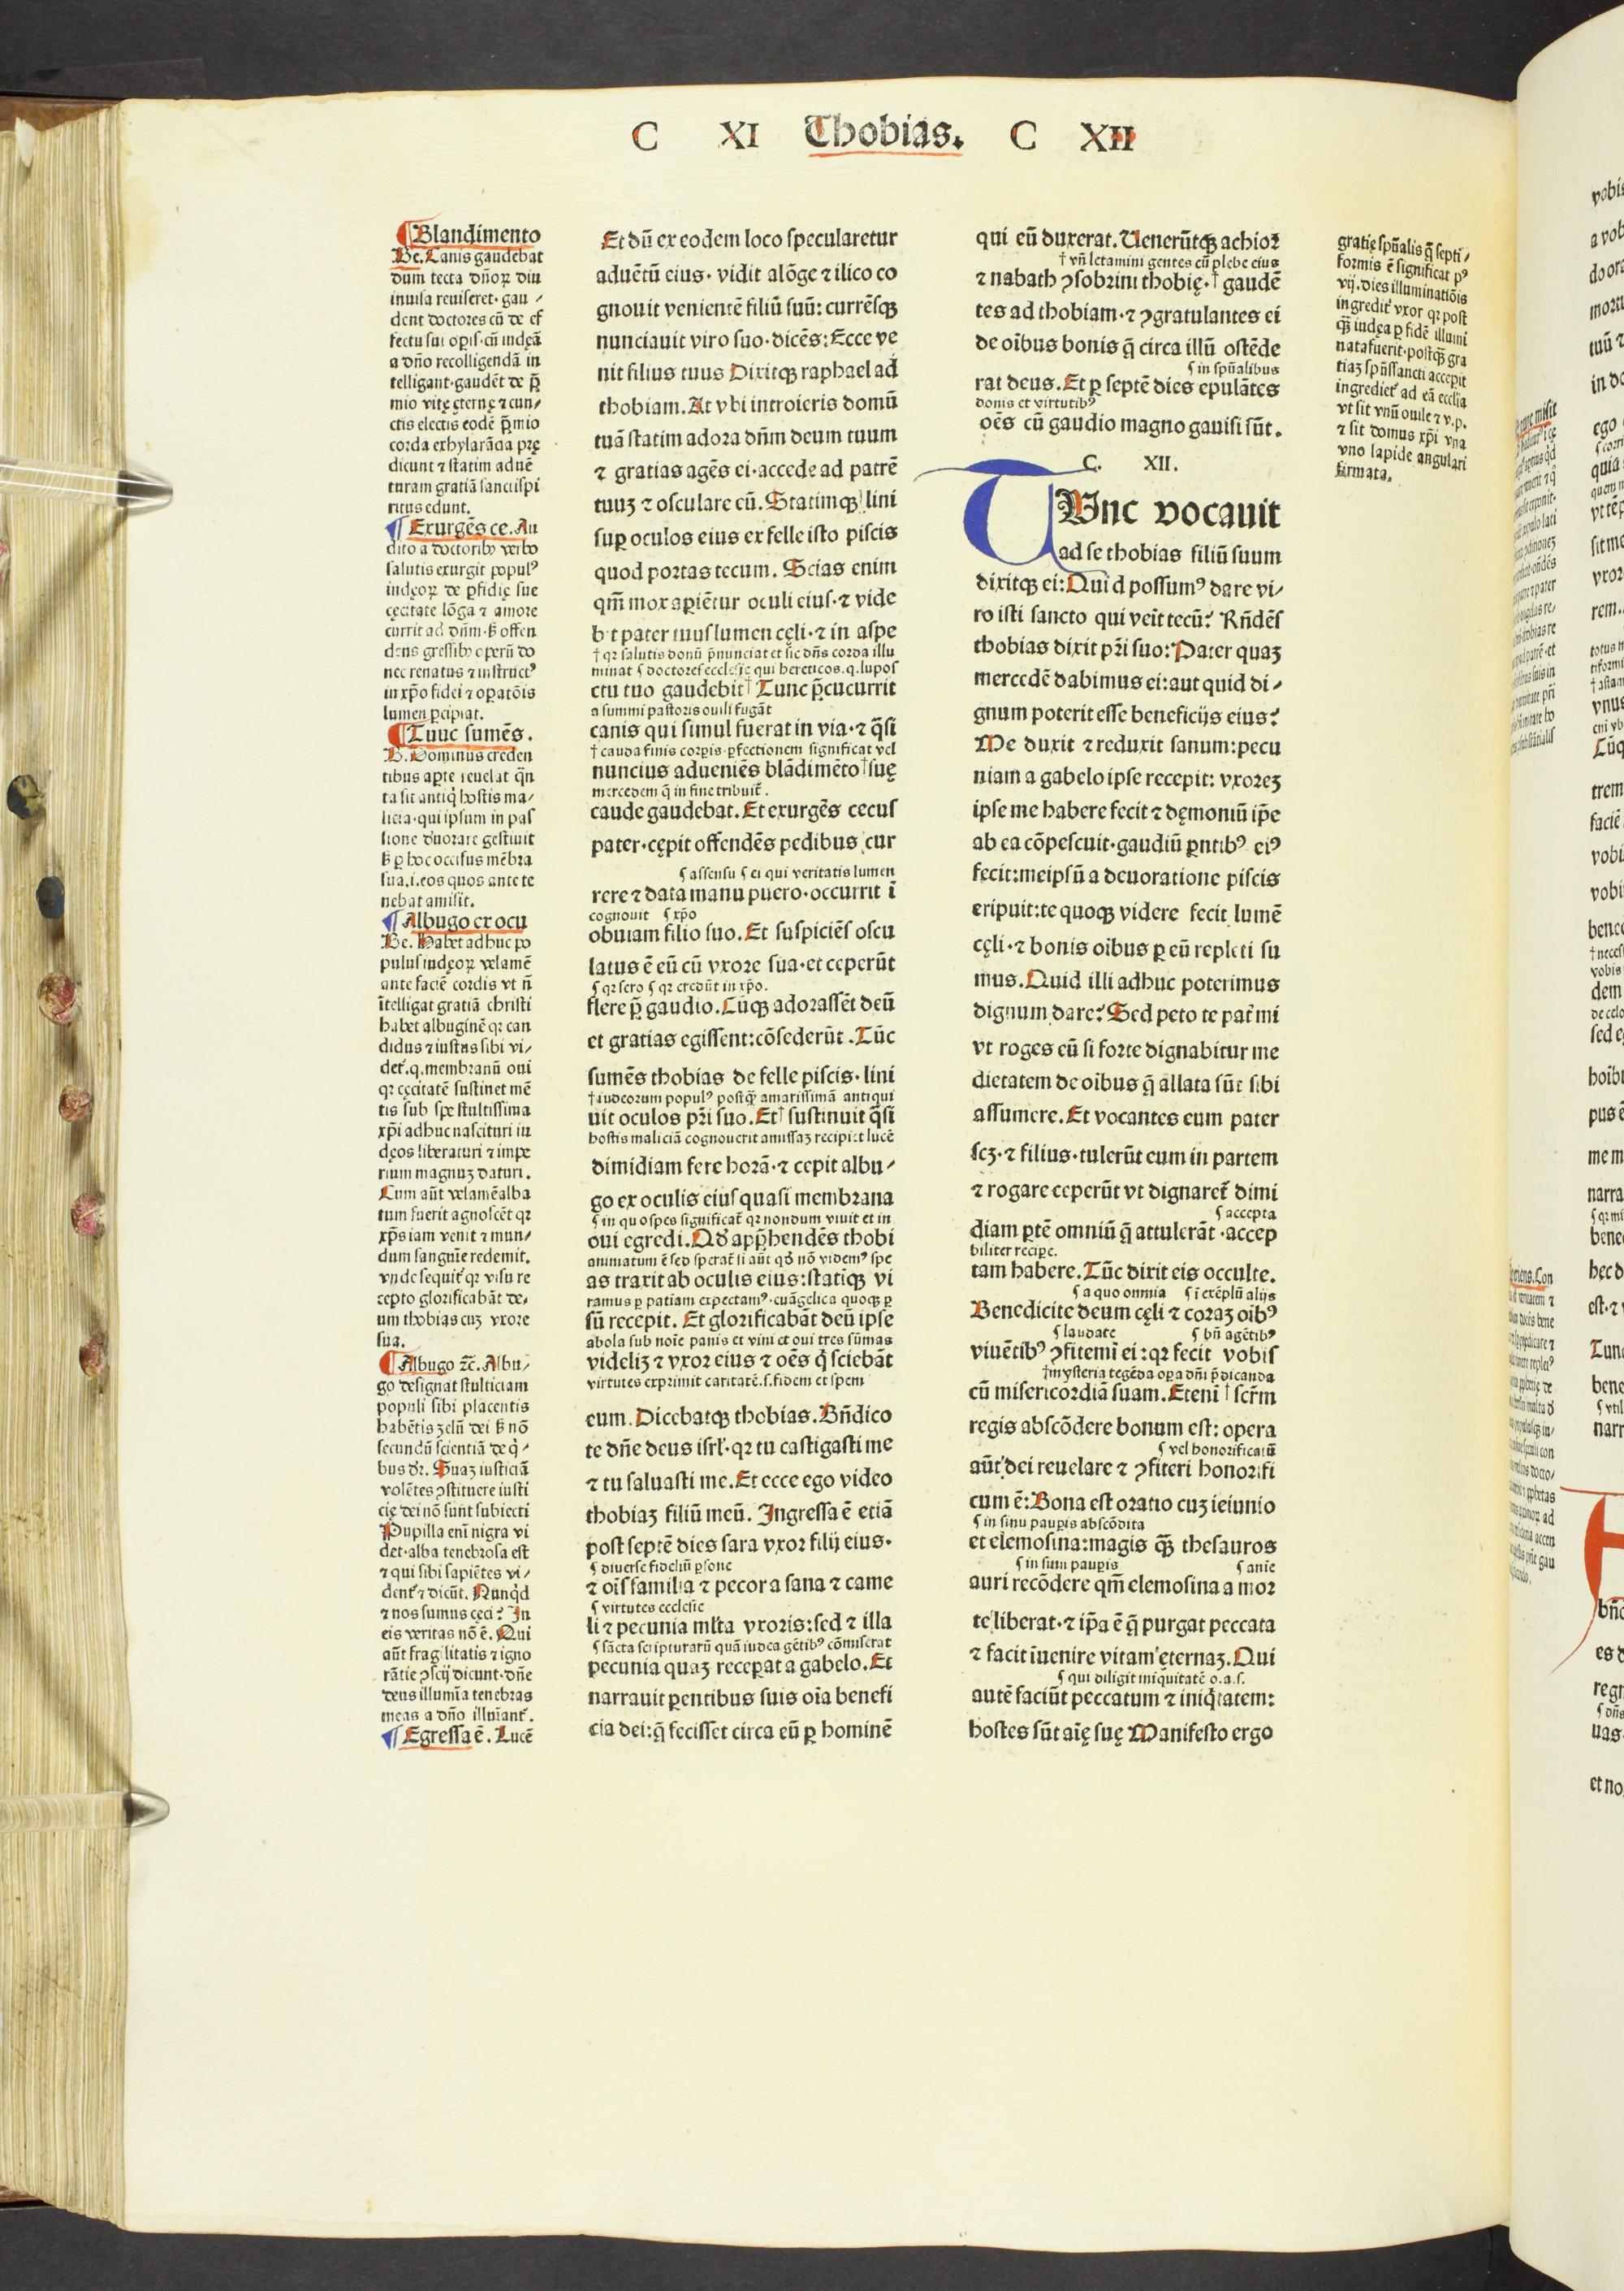 C XI Thobias. C XII
¶Blandimento
Be. Canis gaudebat
dum tecta dñoꝝ diu
inuisa reuiseret· gau⸗
dent doctores cū de ef
fectu sui op̄is· cū iudęā
a dño recolligendā in
telligant·gaudēt de p̄
mio vitę ęternę ⁊ cun⸗
ctis electis eodē p̄mio
corda exhylarāda prę
dicunt ⁊ statim aduē
turam gratiā sancti spi
ritus edunt.
¶ Exurgēs ce. Au
dito a doctoribꝰ verbo
salutis exurgit popul⁹
iudęoꝝ de ꝑfidię sue
cęcitate lōga ⁊ amore
currit ad dñm·s̄ offen
dens gressibꝰ operū do
nec renatus ⁊ instruct⁹
in xp̄o fidei ⁊ oꝑatōis
lumen ꝑcipiat.
¶Tuuc sumēs.
B. Dominus creden
tibus aꝑte reuelat q̄n
ta sit antiq̇ hostis ma⸗
licia·qui ipsum in pas
sione d̓uorare gestiuit
s̄ ꝑ hoc occisus mēbra
sua.i.eos quos ante te
nebat amisit.
¶ Albugo ex ocu
Be. Habet adhuc po
pulus iudęoꝝ velamē
ante faciē cordis vt ñ
ītelligat gratiā christi
habet albuginē qꝛ can
didus ⁊ iustus sibi vi⸗
det᷑.q.membranū oui
qꝛ cęcitatē sustinet mē
tis sub spe stultissima
xp̄i adhuc nascituri iu
dęos liberaturi ⁊ impe
rium magnuꝫ daturi.
Cum aūt velamē alba
tum fuerit agnoscēt qꝛ
xp̄s iam venit ⁊ mun⸗
dum sanguīe redemit.
vnde sequit᷑ qꝛ visu re
cepto glorificabāt de⸗
um thobias cuꝫ vxore
sua.
¶Albugo ⁊c̄. Albu⸗
go designat stulticiam
populi sibi placentis
habētis zelū dei s̄ nō
secundū scientiā de q̇⸗
bus d̓r. Suaꝫ iusticiā
volētes ꝯstituere iusti
cię dei nō sunt subiecti
Pupilla enī nigra vi
det·alba tenebrosa est
⁊ qui sibi sapiētes vi⸗
dent᷑ ⁊ dicūt. Nunq̇d
⁊ nos sumus cęci? In
eis veritas nō ē. Qui
aūt fragilitatis ⁊ igno
rātie ꝯscij dicunt·dñe
deus illumīa tenebras
meas a dño illuīant᷑.
¶ Egressa ē. Lucē
Et dū ex eodem loco specularetur
aduētū eius· vidit alōge ⁊ ilico co
gnouit venientē filiū suū: currēsqꝫ
nunciauit viro suo·dicēs: Ecce ve
nit filius tuus Dixitqꝫ raphael ad
thobiam. At vbi introieris domū
tuā statim adora dñm deum tuum
⁊ gratias agēs ei·accede ad patrē
tuuꝫ ⁊ osculare eū. Statimqꝫ lini
suꝑ oculos eius ex felle isto piscis
quod portas tecum. Scias enim
qm̄ mox aꝑiētur oculi eius·⁊ vide
b t pater tuus lumen cęli·⁊ in aspe
† qꝛ salutis donū p̄nunciat et sic dñs corda illu
minat ¶ doctores ecclesię qui hereticos.q.lupos
ctu tuo gaudebit† Tunc p̄cucurrit
a summi pastoris ouili fugāt
canis qui simul fuerat in via·⁊ q̄si
† cauda finis corꝑis·ꝑfectionem significat vel
nuncius adueniēs blādimēto†suę
mercedem q̄ in fine tribuit᷑.
caude gaudebat. Et exurgēs cecus
pater·cępit offendēs pedibus cur
¶ assensu ¶ ei qui veritatis lumen
rere ⁊ data manu puero·occurrit ī
cognouit ¶ xp̄o
obuiam filio suo. Et suspiciēs oscu
latus ē eū cū vxore sua·et ceperūt
¶ qꝛ sero ¶ qꝛ credūt in xp̄o.
flere p̄ gaudio. Cūqꝫ adorassēt deū
et gratias egissent:cōsederūt. Tūc
sumēs thobias de felle piscis· lini
† iudeorum popul⁹ postq̄ꝫ amarissimā antiqui
uit oculos pr̄i suo. Et† sustinuit q̄si
hostis maliciā cognouerit amissaꝫ recipiet lucē
dimidiam fere horā·⁊ cepit albu⸗
go ex oculis eius quasi membrana
¶ in quo spes significat᷑ qꝛ nondum viuit et in
oui egredi. Qd̓ app̄hendēs thobi
animatum ē sed sperat᷑ si aūt qd̓ nō videm⁹ spe
as traxit ab oculis eius:statiqꝫ vi
ramus ꝑ patiam expectam⁹·euāgelica quoqꝫ ꝑ
sū recepit. Et glorificabāt deū ipse
abola sub noīe panis et vini et oui tres sūmas
videliꝫ ⁊ vxor eius ⁊ oēs q̇ sciebāt
virtutes exprimit caritatē.s.fidem et spem
eum. Dicebatqꝫ thobias. Bñdico
te dñe deus isrl̓·qꝛ tu castigasti me
⁊ tu saluasti me. Et ecce ego video
thobiaꝫ filiū meū. Ingressa ē etiā
post septē dies sara vxor filij eius·
¶ diuerse fideliū ꝑsone
⁊ oīs familia ⁊ pecora sana ⁊ came
¶ virtutes ecclesie
li ⁊ pecunia ml̓ta vxoris:sed ⁊ illa
¶ sācta scripturarū quā iudea gētib⁹ cōmiserat
pecunia quaꝫ receꝑat a gabelo. Et
narrauit ꝑentibus suis oīa benefi
cia dei:q̄ fecisset circa eū ꝑ hominē
qui eū duxerat. Uenerūtqꝫ achior
† vñ letamini gentes cū plebe eius
⁊ nabath ꝯsobrini thobię·† gaudē
tes ad thobiam·⁊ ꝯgratulantes ei
de oībus bonis q̄ circa illū ostēde
¶ in spūalibus
rat deus. Et ꝑ septē dies epulātes
donis et virtutib⁹
oēs cū gaudio magno gauisi sūt.
C. XII.
TUnc vocauit
ad se thobias filiū suum
dixitqꝫ ei: Quid possum⁹ dare vi⸗
ro isti sancto qui veīt tecū? Rñdēs
thobias dixit pr̄i suo: Pater quaꝫ
mercedē dabimus ei:aut quid di⸗
gnum poterit esse beneficijs eius?
Me duxit ⁊ reduxit sanum:pecu
niam a gabelo ipse recepit: vxoreꝫ
ipse me habere fecit ⁊ dęmoniū ip̄e
ab ea cōpescuit·gaudiū ꝑntib⁹ ei⁹
fęcit:meipsū a deuoratione piscis
eripuit:te quoqꝫ videre fecit lumē
cęli·⁊ bonis oībus ꝑ eū repleti su
mus. Quid illi adhuc poterimus
dignum dare? Sed peto te pat̄ mi
vt roges eū si forte dignabitur me
dietatem de oibus q̄ allata sūt sibi
assumere. Et vocantes eum pater
scꝫ·⁊ filius·tulerūt eum in partem
⁊ rogare ceperūt vt dignaret᷑ dimi
¶ accepta
diam ꝑtē omniū q̄ attulerāt·accep
biliter recipe.
tam habere. Tūc dixit eis occulte.
¶ a quo omnia ¶ ī exēplū alijs
Benedicite deum cęli ⁊ coraꝫ oib⁹
¶ laudate ¶ bñ agētib⁹
viuētib⁹ ꝯfitemī ei:qꝛ fecit vobis
†mysteria tegēda oꝑa dñi p̄dicanda
cū misericordiā suam. Etenī † scr̄m
regis abscōdere bonum est: opera
¶ vel honorificatū
aūt dei reuelare ⁊ ꝯfiteri honorifi
cum ē: Bona est oratio cuꝫ ieiunio
¶ in sinu pauꝑis abscōdita
et elemosina:magis q̄ꝫ thesauros
¶ in sinu pauꝑis ¶ anīe
auri recōdere qm̄ elemosina a mor
te liberat·⁊ ip̄a ē q̄ purgat peccata
⁊ facit īuenire vitam ęternaꝫ. Qui
¶ qui diligit iniquitatē o.a.s.
autē faciūt peccatum ⁊ iniq̇tatem:
hostes sūt aīę suę Manifesto ergo
gratię spūalis q̄ septi⸗
formis ē significat p⁹
vij.dies illuminatiōis
ingredit᷑ vxor qꝛ post
q̄ꝫ iudęa ꝑ fidē illumi
nata fuerit·postq̄ꝫ gra
tiaꝫ spūssancti accepit
ingrediet᷑ ad eā ecclīa
vt sit vnū ouile ⁊ v.p.
⁊ sit domus xp̄i vna
vno lapide angulari
firmata.